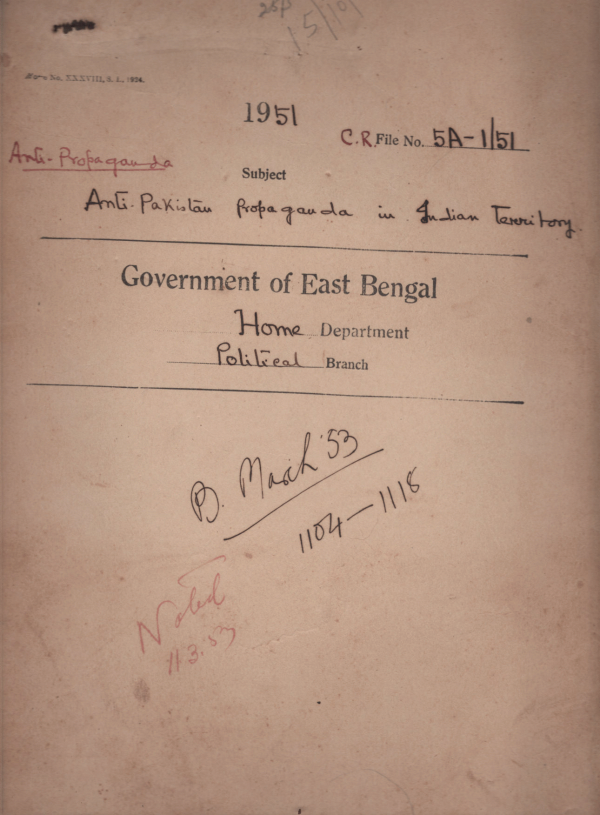 25p
15/10
Form No. XXXVIII, B. L., 1936.
1951
C.R. File No. 5A-1/51
Anti-Propaganda
Subject
Anti-Pakistan Propaganda in Indian Territory.
Government of East Bengal
Home Department
Political Branch
B. March '53
1104-1118
Noted
11.3.53